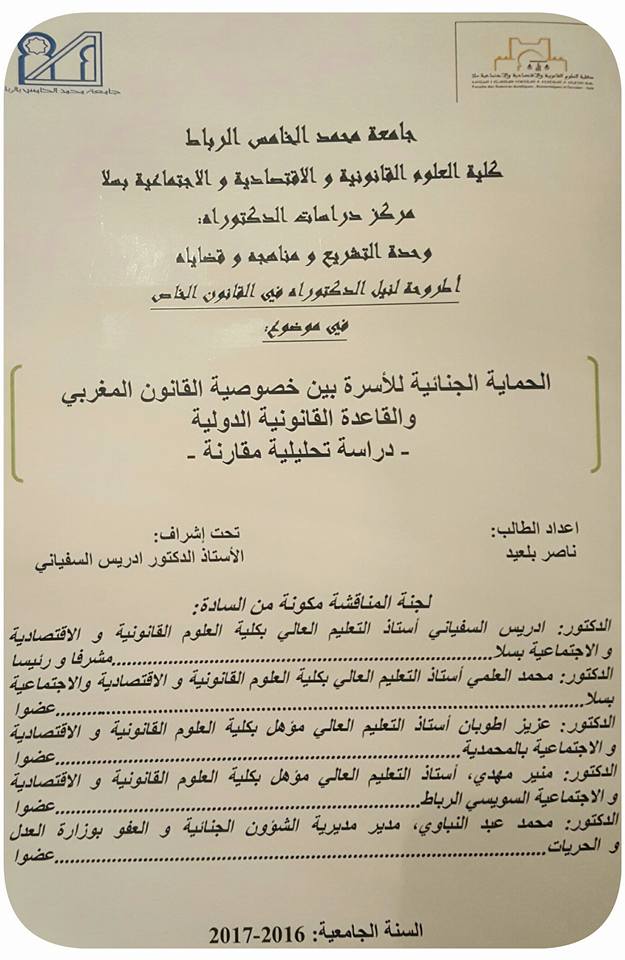 جامعة محمد الخامس بالرباط
كلية العلوم القانونية والاقتصادية والاجتماعية سلا
جامعة محمد الخامس الرباط
كلية العلوم القانونية و الاقتصادية و الاجتماعية بسلا
مركز دراسات الدكتوراه:
وحدة التشريع و مناهجه و قضاياه
أطروحة لنيل الدكتوراه في القانون الخاص
في موضوع:
الحماية الجنائية للأسرة بين خصوصية القانون المغربي
والقاعدة القانونية الدولية
- دراسة تحليلية مقارنة -
اعداد الطالب:
ناصر بلعيد
تحت إشراف:
الأستاذ الدكتور ادريس السفياني
لجنة المناقشة مكونة من السادة:
الدكتور: ادريس السفياني أستاذ التعليم العالي بكلية العلوم القانونية و الاقتصادية
و الاجتماعية بسلا.......................................................مشرفا و رئيسا
الدكتور: محمد العلمي أستاذ التعليم العالي بكلية العلوم القانونية و الاقتصادية والاجتماعية
بسلا.......................................................عضوا
الدكتور: عزيز اطوبان أستاذ التعليم العالي مؤهل بكلية العلوم القانونية و الاقتصادية
و الاجتماعية بالمحمدية.......................................................عضوا
الدكتور: منير مهدي، أستاذ التعليم العالي مؤهل بكلية العلوم القانونية و الاقتصادية
و الاجتماعية السويسي الرباط.......................................................عضوا
الدكتور: محمد عبد النباوي، مدير مديرية الشؤون الجنائية و العفو بوزارة العدل
و الحريات.......................................................عضوا
السنة الجامعية: 2016-2017